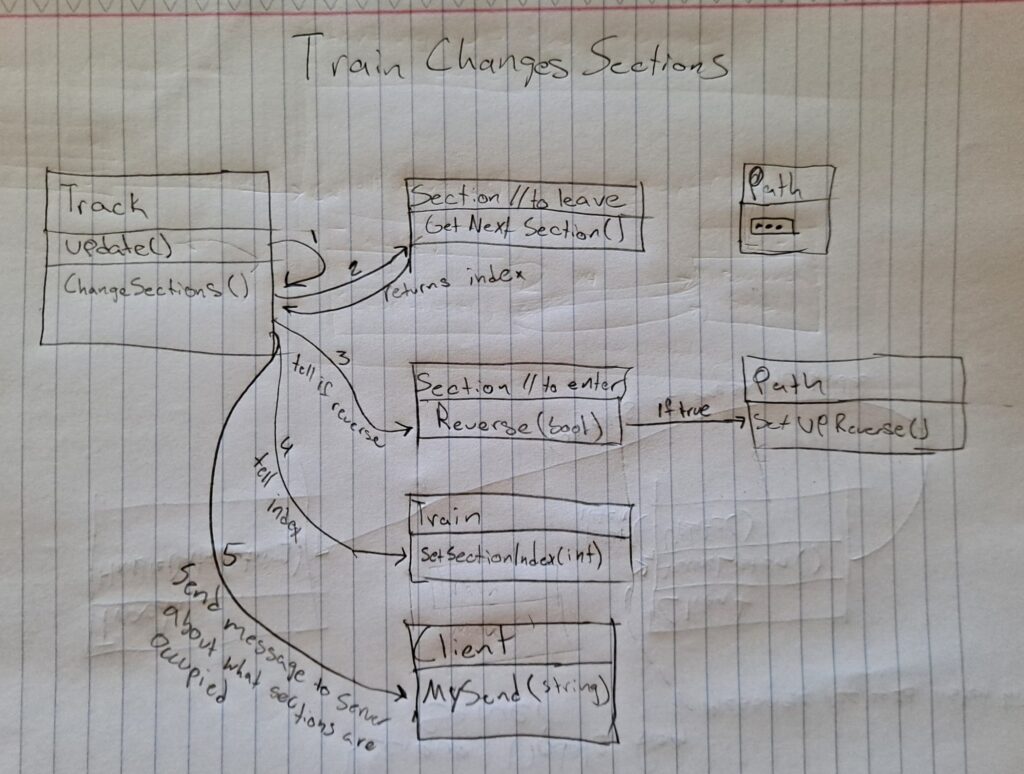 Train Changes Sections
Track
update()
ChangeSections()
1
2
Section // to leave
GetNextSection()
returns index
Path
...
3
tell is reverse
Section // to enter
Reverse(bool)
If true
Path
SetUPReverse()
4
tell index
Train
SetSectionIndex(int)
5
Send message to Server
about what sections are
occupied
Client
MySend(string)